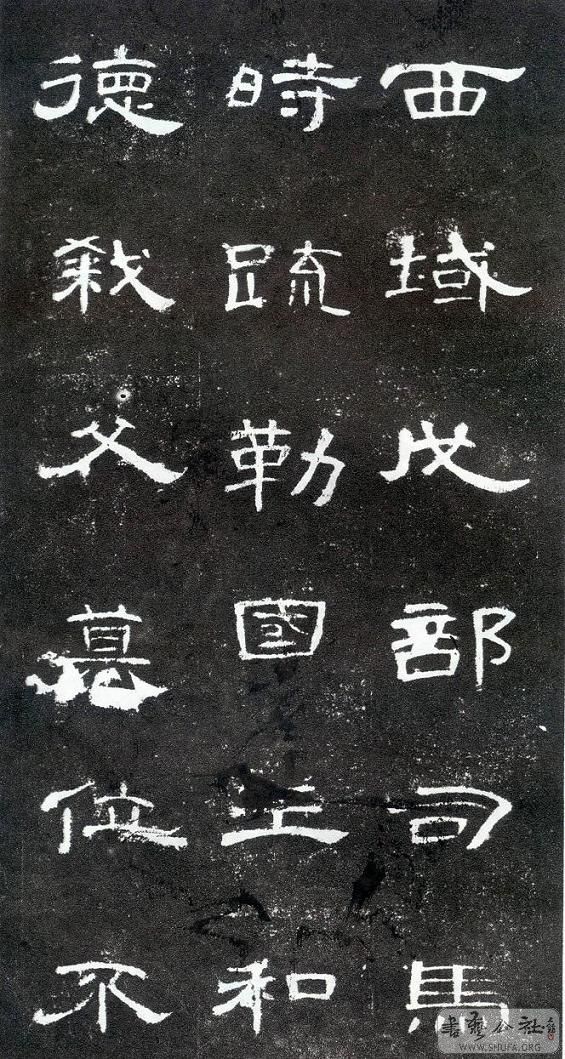 西域戊部司馬
時疏勒國王和
德弒父篡位不
書藝公社
WWW.SHUFA.ORG